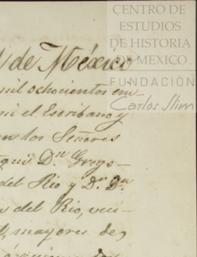 CENTRO DE
ESTUDIOS
DE HISTORIA
DE MEXICO
FUNDACIÓN
Carlos Slim
d de México
mil ochocientos
mi el Escribano y
los Señores
aqui Dn. Grego-
del Rio y Dr. Dn.
del Rio, veci-
mayores de